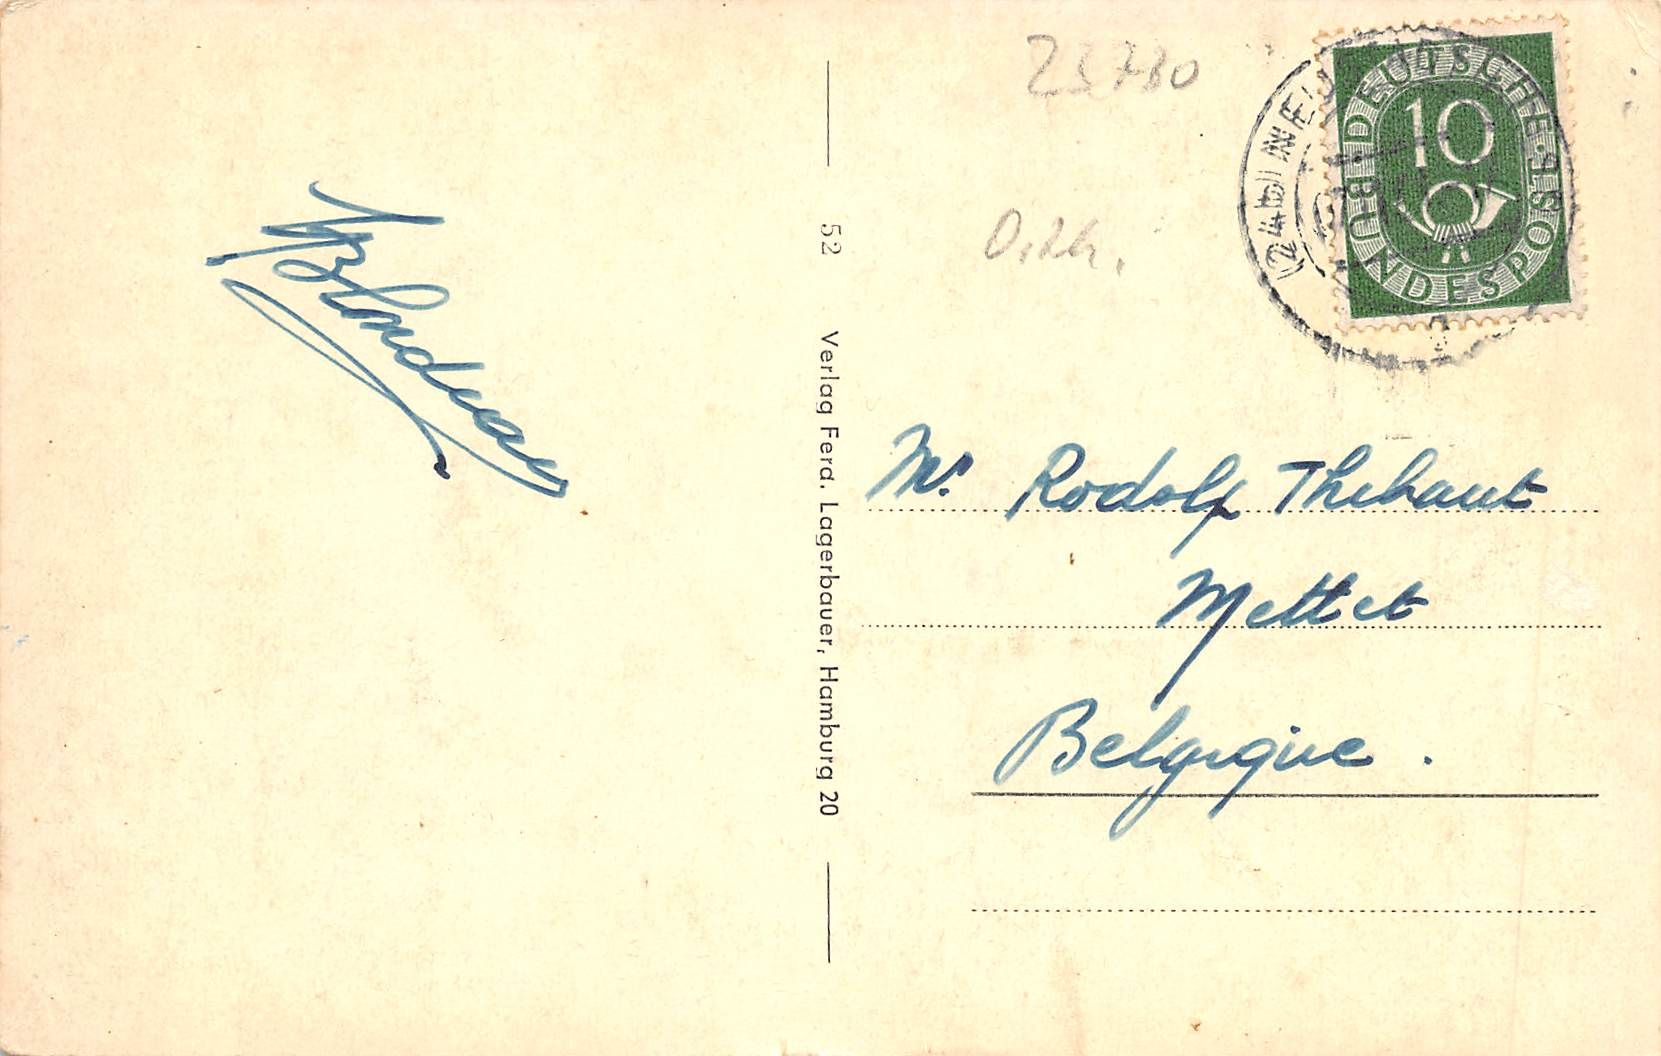 23780
DEUTSCHE
10
BUNDESPOST
52
Verlag Ferd. Lagerbauer, Hamburg 20
Mr Rodolf Thibaut
Mettet
Belgique.